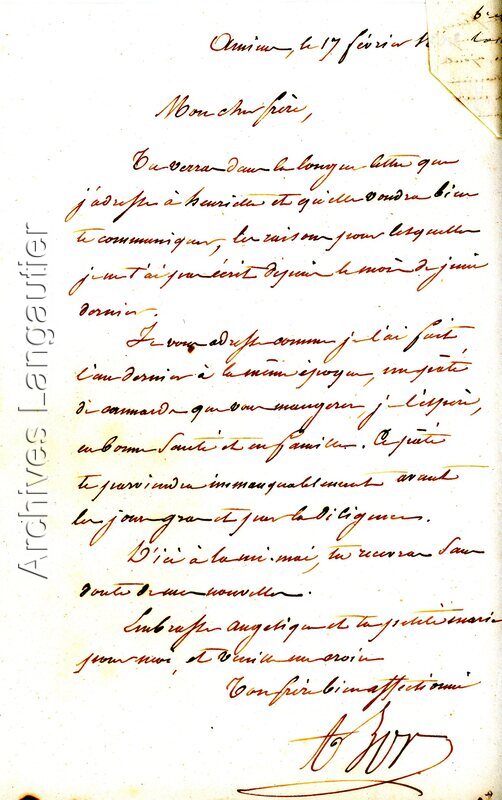 Amiens, le 17 février
Mon cher frère,
Tu verras dans la longue lettre que
j'adresse à henriette et qu'elle voudra bien
te communiquer, les raisons pour lesquelles
je ne t'ai pas écrit depuis le mois de juin
dernier.
Je vous adresse comme je l'ai fait
l'an dernier à la même époque, un pâté
de canards que vous mangerez, je l'espère,
en bonne santé et en famille. Ce pâté
te parviendra immanquablement avant
les jours gras et par la diligence.
D'ici à la mi-mai, tu recevras sans
doute de mes nouvelles.
Embrasse angelique et ta petite marie
pour moi, et veuille me croire
Ton frère bien affectionné
Archives Langautier